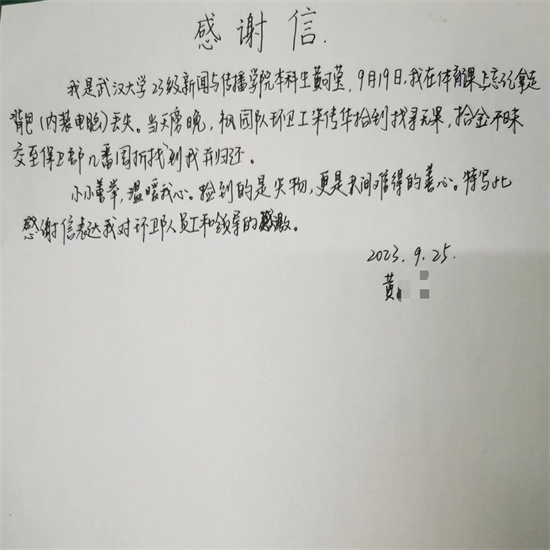 感谢信.
我是武汉大学23级新闻与传播学院本科生黄可莹，9月19日，我在体育课上忘记拿走
背包（内装电脑）丢失。当天傍晚，校园队环卫工宋传华拾到找寻无果，拾金不昧
交至保卫部几番周折找到我并归还。
小小善举，温暖我心。捡到的是失物，更是人间难得的善心。特写此
感谢信表达我对环卫队员工和领导的感激。
2023.9.25.
黄